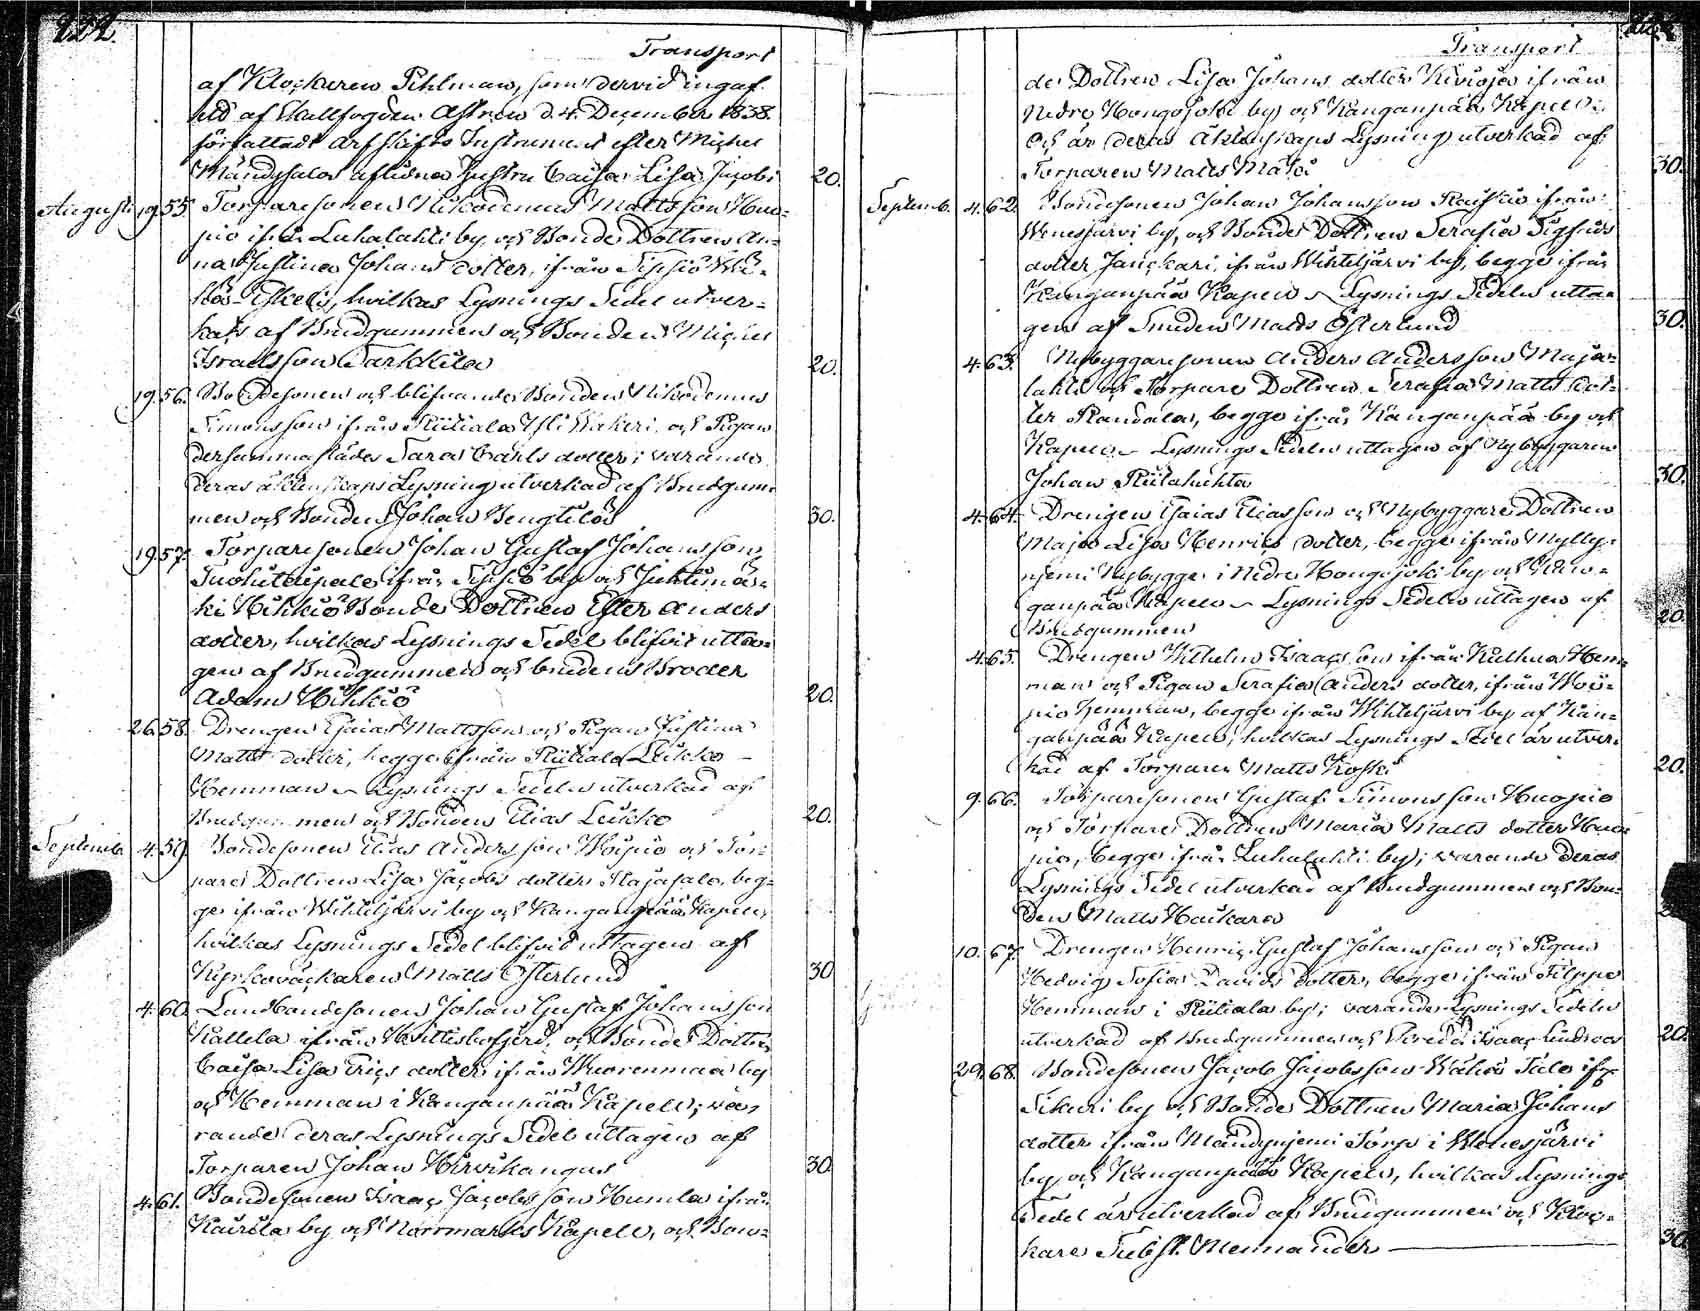 Transport
af Klockaren Pihlman, som dervid ingaf
ett af Skallfogden Astren d. 4. December 1838.
författadt Arfskifts Instrument efter Michel
Mändysalos aflidna Hustru Caisa Lisa Jacobs 20.
Augusti 19. 55. Torparesonen Nikodemus Mattsson Huo-
pio ifrån Luhalahti by och Bonde Dottren An-
na Justina Johans dotter, ifrån Sippiö Wä-
hä-Eskeli, hvilkas Lysnings Sedel utver-
kats af Brudgummen och Bonden Michel
Israelsson Tarkkila 20.
19. 56. Bondesonen och blifvande Bonden Nikodemus
Simonsson ifrån Riitiala Yli Kakeri och Pigan
dersammastädes Sara Carls dotter; varande
deras äktenskaps Lysning utverkad af Brudgum-
men och Bonden Johan Bengtilä 30.
19. 57. Torparesonen Johan Gustaf Johansson
Tuohitaipale ifrån Sippiö by och Juhtimä-
ki Hihkiö Bonde Dottren Ester Anders
dotter, hvilkas Lysnings Sedel blifvit utta-
gen af Brudgummen och brudens Broder
Adam Hihkiö 20.
26. 58. Drengen Esaias Mattsson och Pigan Justina
Matts dotter, begge ifrån Riitiala Leikko
Hemman Lysnings Sedeln utverkad af
Brudgummen och Bonden Elias Leikko 20.
Septemb. 4. 59. Bondesonen Elias Andersson Woipio och Tor-
pare Dottren Lisa Jacobs dotter Rajasalo, beg-
ge ifrån Wihteljärvi by och Kanganpää Kapell,
hvilkas Lysnings Sedel blifvid uttagen af
Kyrkoväckaren Matts Österlund 30
4. 60. Landbondesonen Johan Gustaf Johansson
Kallela ifrån Hvittisbofjerd, och Bonde Dottren
Caisa Lisa Erics dotter ifrån Wuorenmaa by
och Hemman i Kanganpää Kapell; va-
rande deras Lysnings Sedel uttagen af
Torparen Johan Hirvikangas 30.
4. 61. Bondesonen Isaac Jacobsson Humla ifrån
Kairila by och Norrmarks Kapell, och Bon-
Transport
de Dottren Lisa Johans dotter Kivioja ifrån
Nedre Hongojoki by och Kanganpää Kapell
och är deras Äktenskaps Lysning utverkad af
Torparen Matts Mäki 30.
Septemb. 4. 62. Bondesonen Johan Johansson Rauskio ifrån
Wenesjärvi by, och Bonde Dottren Serafia Sigfrids
dotter Janckari, ifrån Wihteljärvi by, begge ifrån
Kanganpää Kapell Lysnings Sedeln utta-
gen af Smeden Matts Österlund 30.
4. 63. Nybyggaresonen Anders Andersson Maja-
lahti och Torpare Dottren Serafia Matts dot-
ter Randala, begge ifrån Kanganpää by och
Kapell Lysnings Sedeln uttagen af Nybyggaren
Johan Riitaluhta 30.
4. 64. Drengen Esaias Eliasson och Nybyggare Dottren
Maja Lisa Henrics dotter, begge ifrån Mylly-
njemi Nybygge i Nedre Hongojoki by och Kan-
ganpää Kapell Lysnings Sedeln uttagen af
Brudgummen 20.
4. 65. Drengen Wilhelm Isaacsson ifrån Kulhua Hem-
man och Pigan Serafia Anders dotter, ifrån Woi-
pio Hemman, begge ifrån Wihteljärvi by af Kan-
ganpää Kapell; hvilkas Lysnings Sedel är utver-
kad af Torparen Matts Koski 20.
9. 66. Torparesonen Gustaf Simonsson Huopio
och Torpare Dottren Maria Matts dotter Huo-
pio, begge ifrån Luhalahti by; varande deras
Lysnings Sedel utverkad af Brudgummen och Bon-
den Matts Haikara
10. 67. Drengen Henric Gustaf Johansson och Pigan
Hedvig Sofia Davids dotter, begge ifrån Filppo
Hemman i Riitiala by; varande Lysnings Sedeln
utverkad af Brudgummen och Isaac Lindroos 20.
29. 68. Bondesonen Jacob Jacobsson Wähä Talo ifrån
Sikuri by och Bonde Dottren Maria Johans
dotter ifrån Mändynjemi Torp i Wenesjärvi
by och Kanganpää Kapell, hvilkas Lysnings
Sedel är utverkad af Brudgummen och Kloc-
kare Subst. Mennander 30.